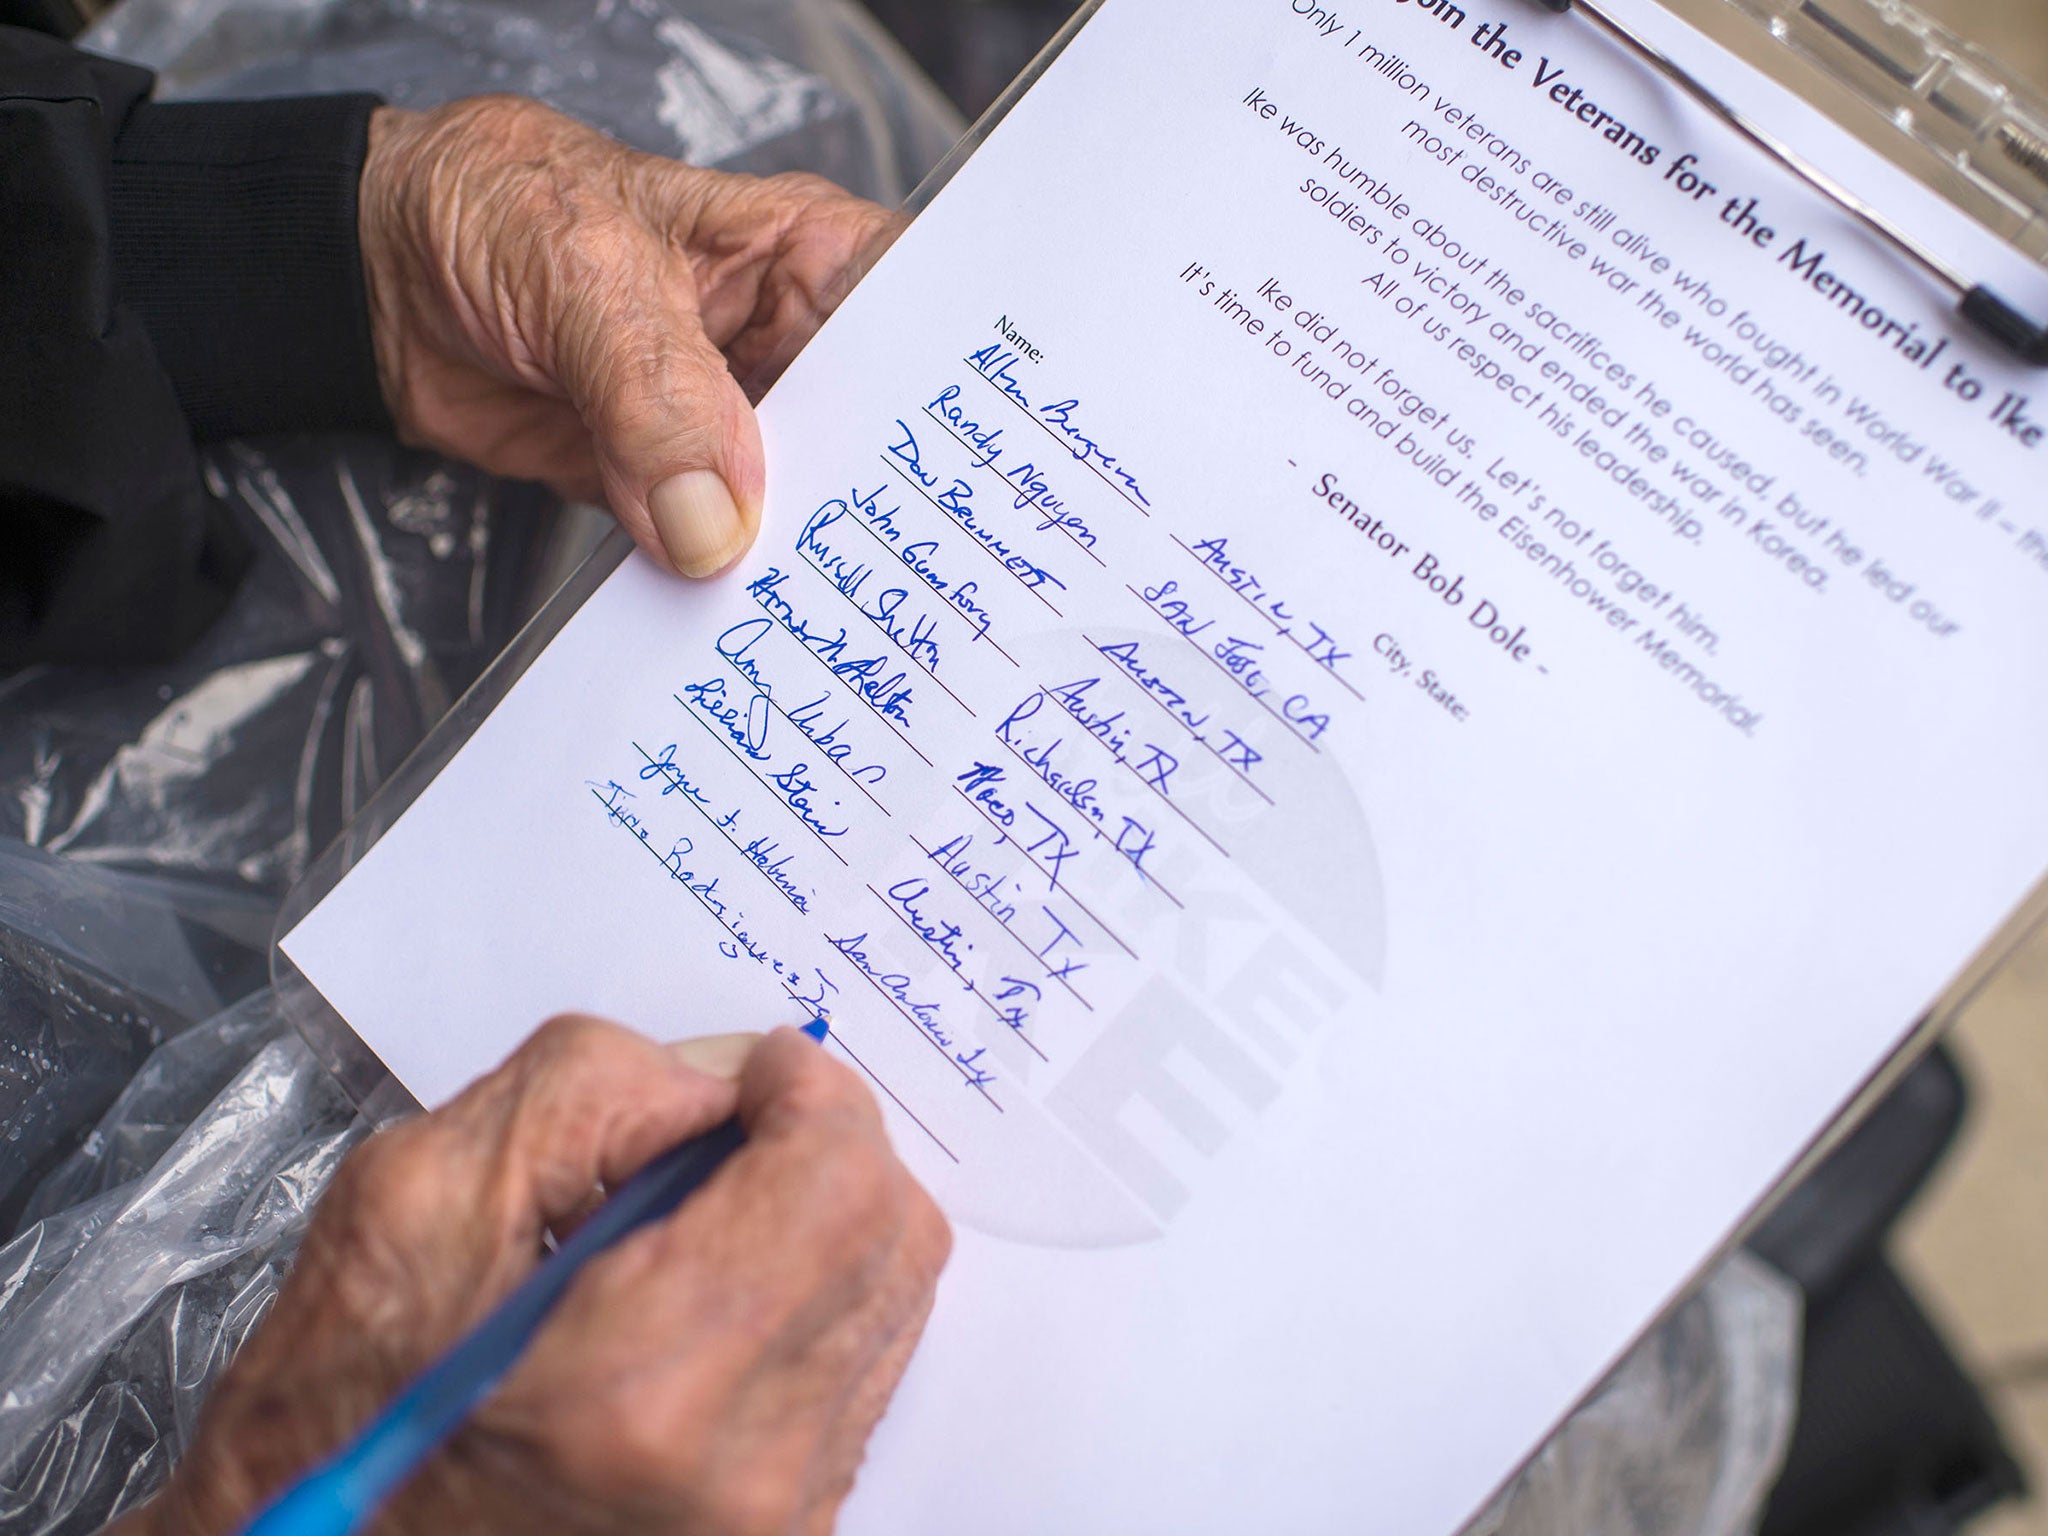 Join the Veterans for the Memorial to Ike
Only 1 million veterans are still alive who fought in World War II – the
most destructive war the world has seen.
Ike was humble about the sacrifices he caused, but he led our
soldiers to victory and ended the war in Korea.
All of us respect his leadership.
Ike did not forget us. Let's not forget him.
It's time to fund and build the Eisenhower Memorial.
- Senator Bob Dole -
Name: City, State:
Austin, TX
Randy Nguyen SAN JOSE, CA
Don BRUMMETT AUSTIN, TX
John Austin, TX
Russell Shelton Richardson, TX
Shelton Waco, TX
Amy Urban Austin TX
Lillian Stein Austin, TX
Joyce San Antonio TX
Rodriguez
IKE